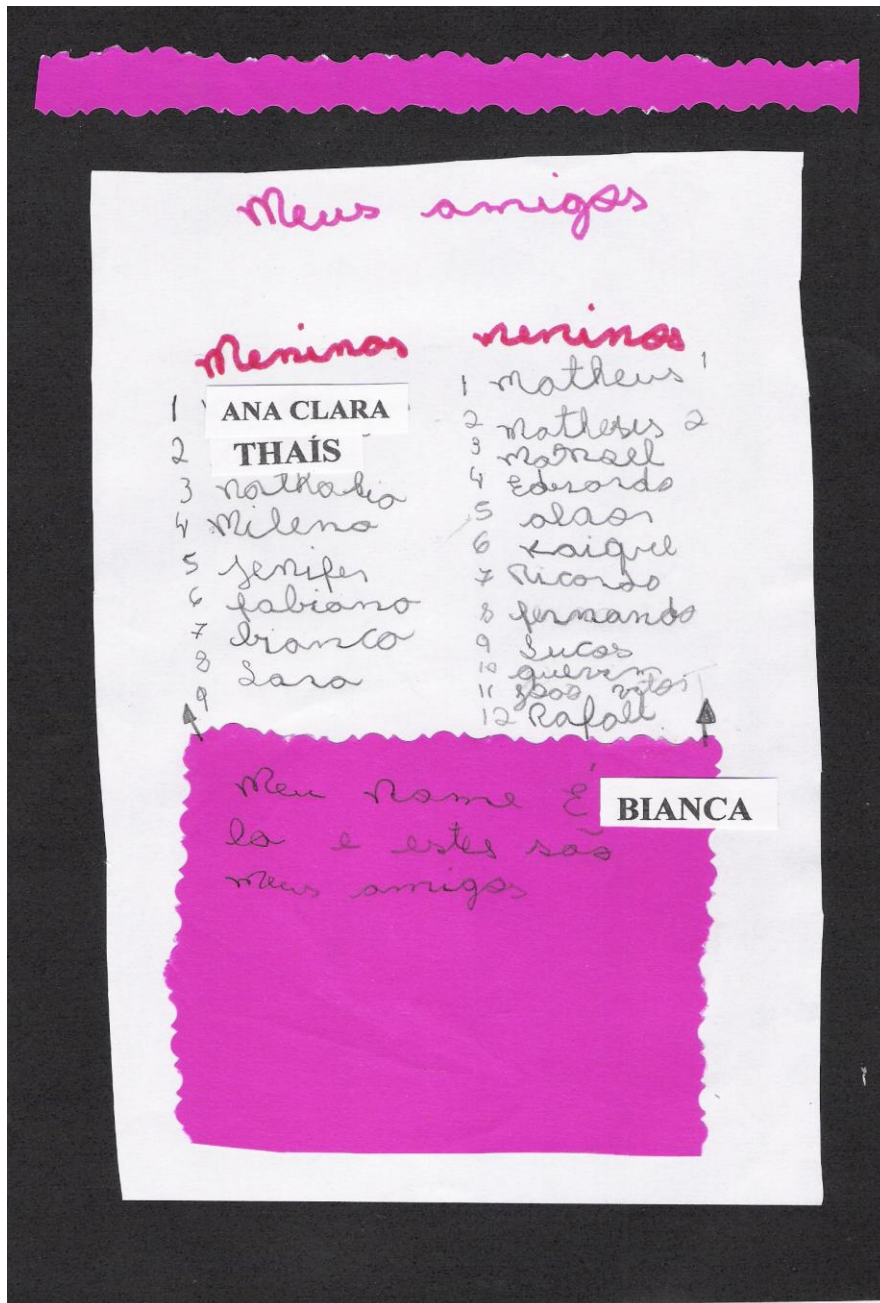 Meus amigos
Meninas
1 ANA CLARA
2 THAÍS
3 nathalia
4 Milena
5 Jenifer
6 fabiana
7 bianca
8 Sara
9
meninos
1 Matheus 1
2 Matheus 2
3
4 Eduardo
5
6 Kaique
7 Ricardo
8 fernando
9 Lucas
10
11 João vitor
12 Rafael
Meu nome É BIANCA
la e estes são
meus amigos